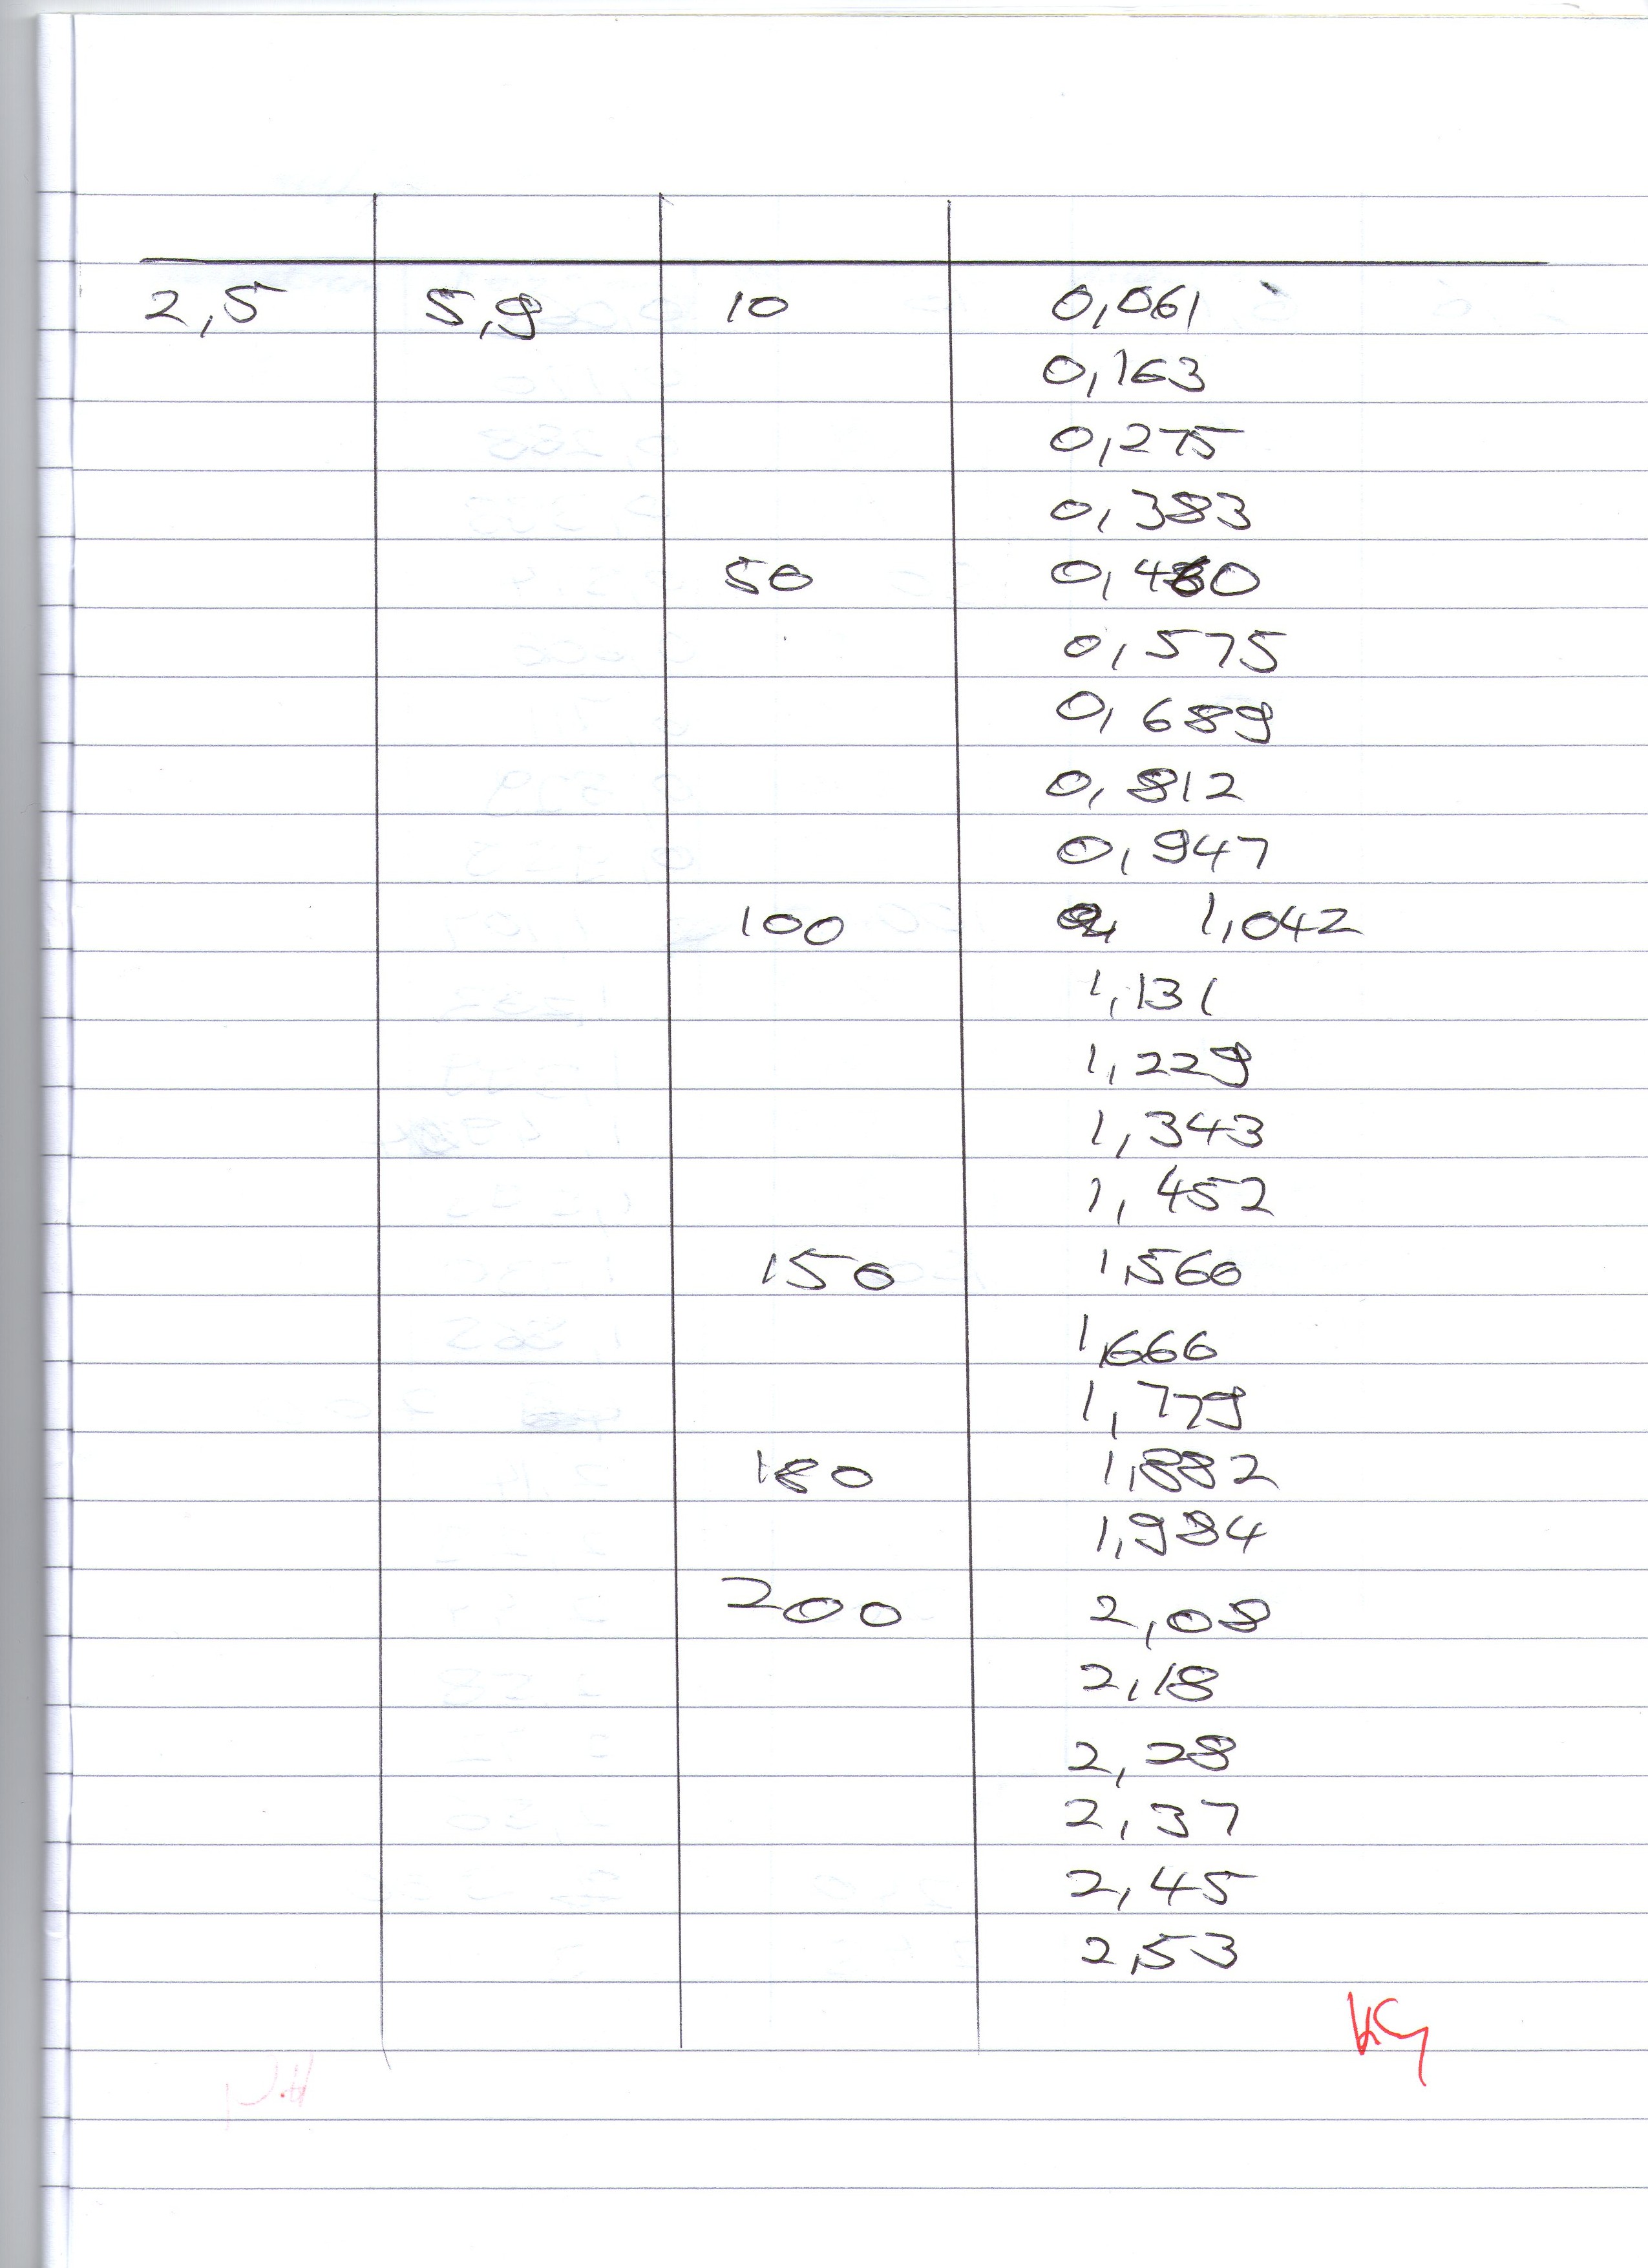 2,5 5,9 10 0,061
0,163
0,275
0,383
50 0,460
0,575
0,689
0,812
0,947
100 1,042
1,131
1,229
1,343
1,452
150 1,560
1,666
1,779
180 1,882
1,984
200 2,08
2,18
2,28
2,37
2,45
2,53